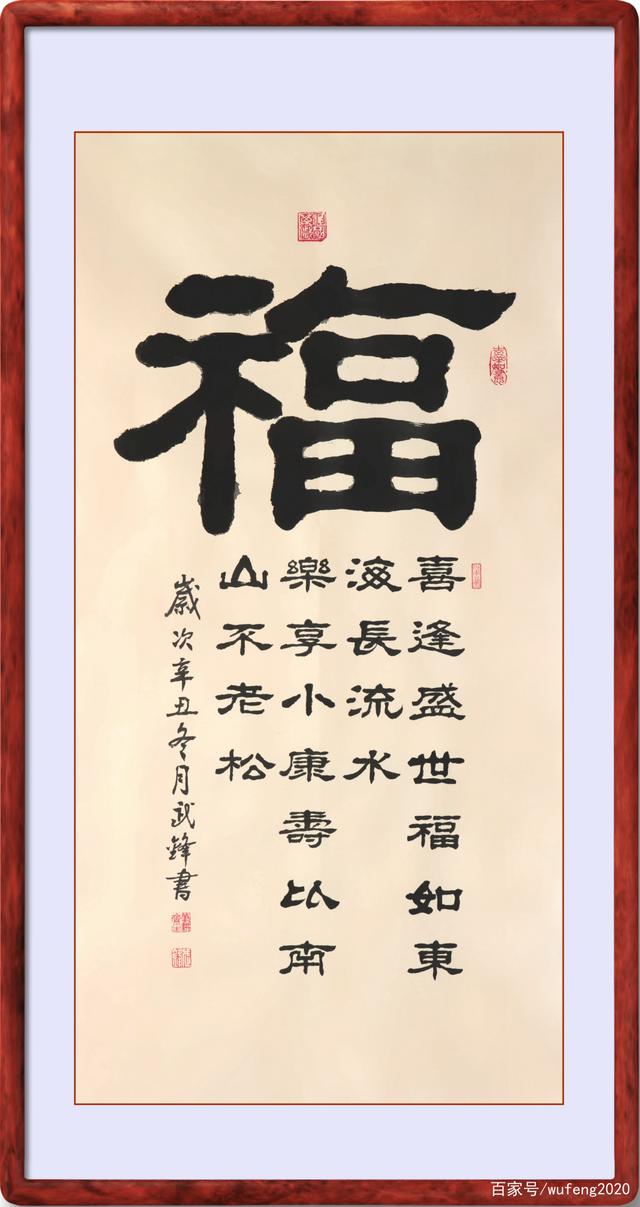 福
喜逢盛世福如東
海長流水
樂享小康壽比南
山不老松
歲次辛丑冬月武鋒書
百家号/wufeng2020